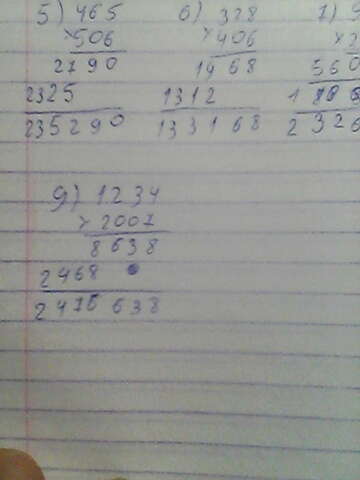 5) 465
×506
2790
2325
235290
6) 328
×406
1968
1312
133168
7)
×2
560
2326
9) 1234
×2007
8638
2468
2476638